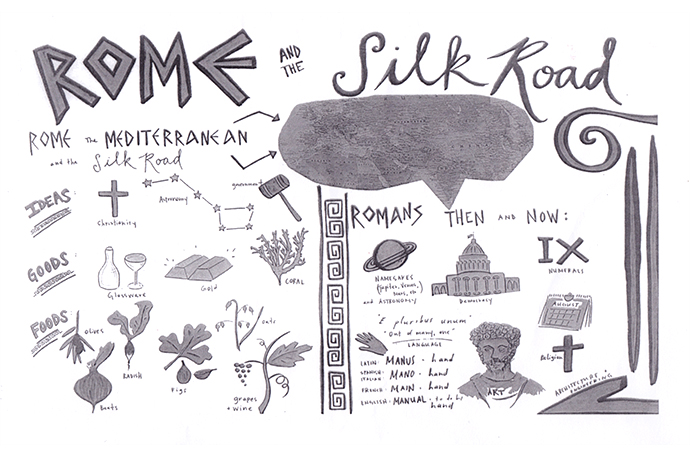 ROME
AND THE
Silk Road
ROME the MEDITERRANEAN
and the Silk Road
IDEAS:
Christianity
Astronomy
government
GOODS:
Glassware
Gold
CORAL
FOODS
olives
RADISH
Beets
Figs
oats
grapes
+ wine
ROMANS THEN AND NOW:
NAMESAKES
and ASTRONOMY
Democracy
IX
NUMERALS
AUGUST
Religion
"E pluribus unum"
"Out of many, one"
LANGUAGE
LATIN: MANUS - hand
SPANISH-
ITALIAN: MANO - hand
FRENCH: MAIN - hand
ENGLISH: MANUAL - to do by
hand
ART
ARCHITECTURE +
ENGINEERING